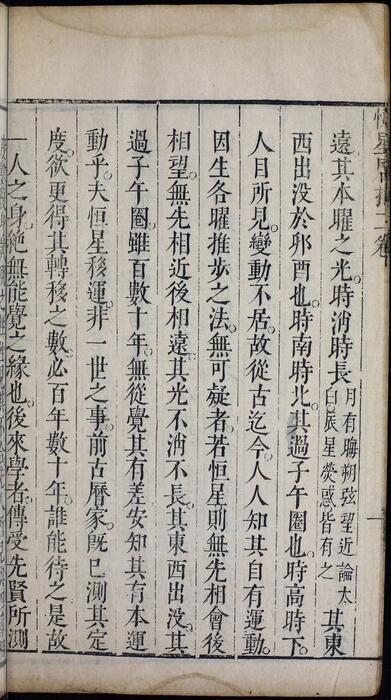 星 卷
遠其本曜之光時消時長月有晦朔弦望近論太
白辰星熒惑皆有之其東
西出没於卯酉也時南時北其過子午圈也時高時下
人目所見變動不居故從古迄今人人知其自有運動
因生各曜推步之法無可疑者若恒星則無先相會後
相望無先相近後相遠其光不消不長其東西出没其
過子午圈雖百數十年無從覺其有差安知其有本運
動乎夫恒星移運非一世之事前古曆家既已測其定
度欲更得其轉移之數必百年數十年誰能待之是故
一人之身絶無能覺之緣也後來學者傳受先賢所測